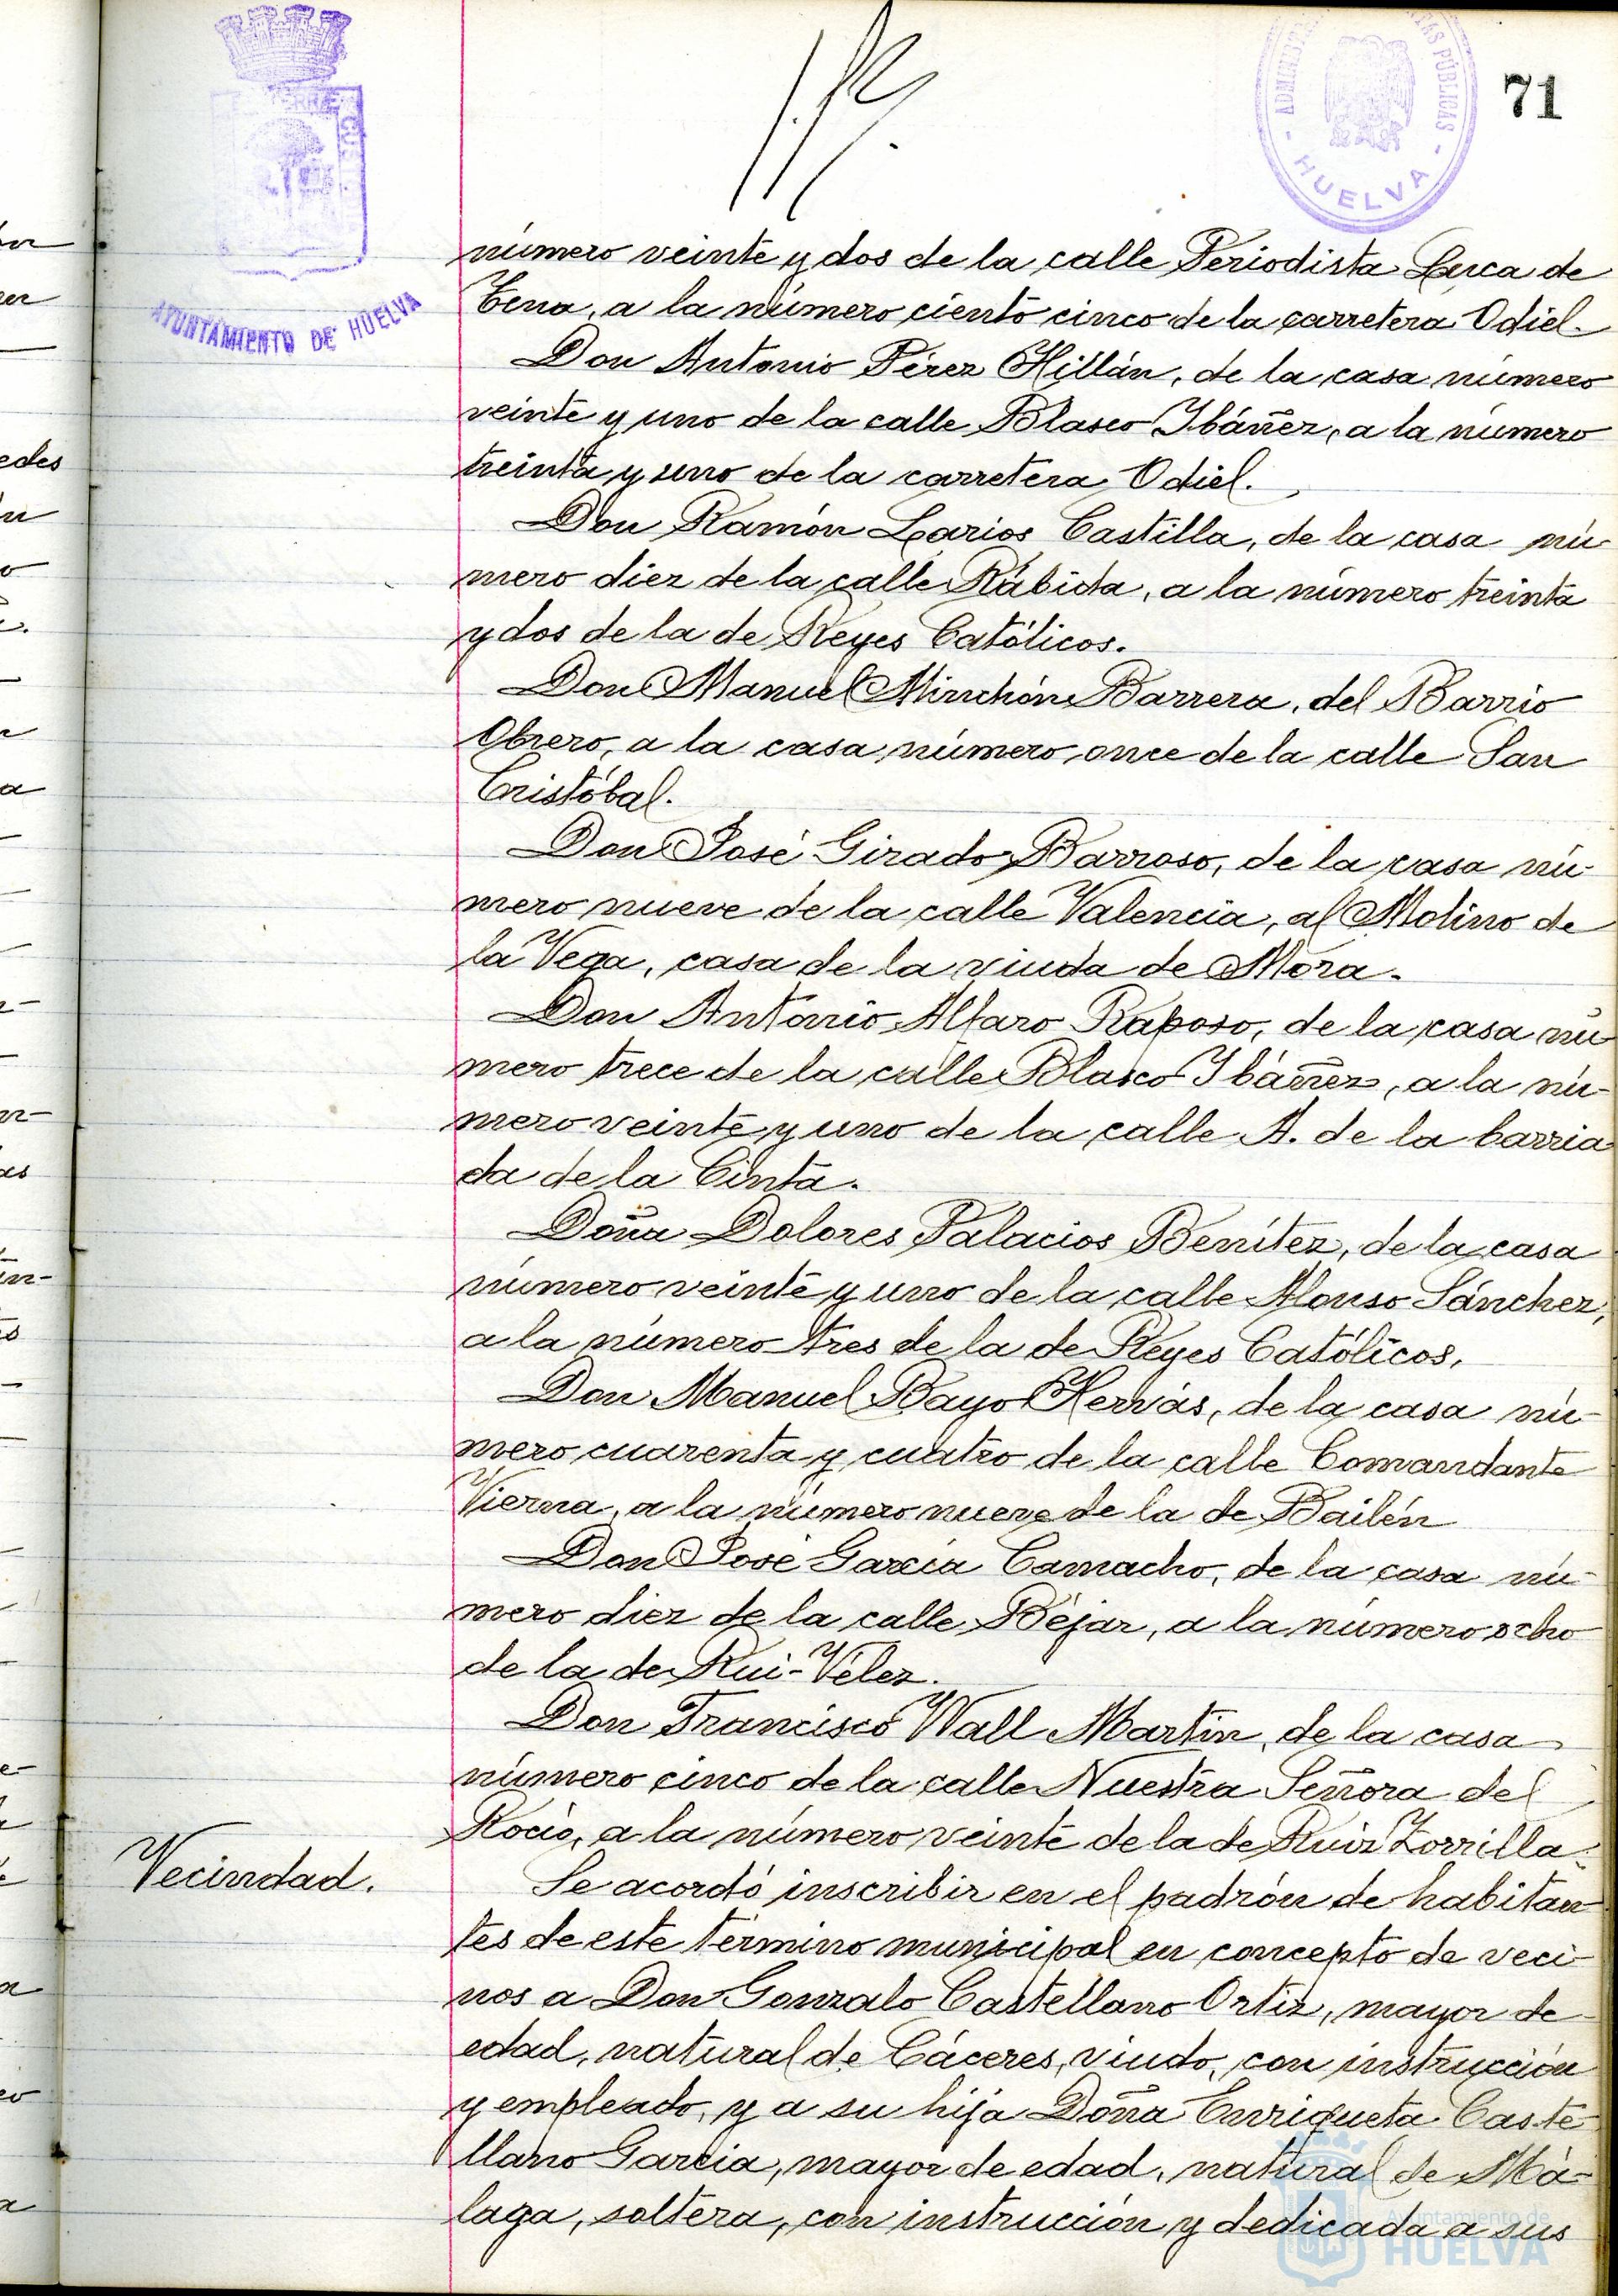 71
ADMINISTRA
TAS PÚBLICAS
- HUELVA -
AYUNTAMIENTO DE HUELVA
número veinte y dos de la calle Periodista Luca de
Tena, a la número ciento cinco de la carretera Odiel.
Don Antonio Pérez Millán, de la casa número
veinte y uno de la calle Blasco Ibáñez, a la número
treinta y uno de la carretera Odiel.
Don Ramón Larios Castilla, de la casa nú-
mero diez de la calle Rábida, a la número treinta
y dos de la de Reyes Católicos.
Don Manuel Minchón Barrera, del Barrio
Obrero, a la casa número once de la calle San
Cristóbal.
Don José Girado Barroso, de la casa nú-
mero nueve de la calle Valencia, al Molino de
la Vega, casa de la viuda de Mora.
Don Antonio Alfaro Raposo, de la casa nú-
mero trece de la calle Blasco Ibáñez, a la nú-
mero veinte y uno de la calle A. de la barria
da de la Cinta.
Doña Dolores Palacios Benítez, de la casa
número veinte y uno de la calle Alonso Sánchez,
a la número tres de la de Reyes Católicos.
Don Manuel Bayo Hervás, de la casa nú-
mero cuarenta y cuatro de la calle Comandante
Vierna, a la número nueve de la de Bailén
Don José García Camacho, de la casa nú-
mero diez de la calle Béjar, a la número ocho
de la de Rui-Vélez.
Don Francisco Wall Martín, de la casa
número cinco de la calle Nuestra Señora del
Rocío, a la número veinte de la de Ruiz Zorrilla.
Vecindad.
Se acordó inscribir en el padrón de habitan
tes de este término municipal en concepto de veci-
nos a Don Gonzalo Castellano Ortiz, mayor de
edad, natural de Cáceres, viudo, con instrucción
y empleado, y a su hija Doña Enriqueta Caste-
llano García, mayor de edad, natural de Má-
laga, soltera, con instrucción y dedicada a sus
Ayuntamiento de
HUELVA